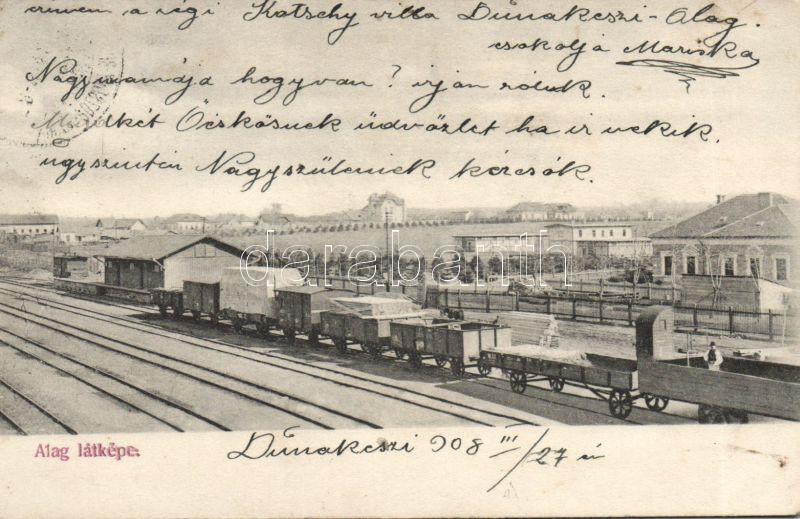 címem a régi Katschy villa Dunakeszi-Alag.
csokolja Mariska
Nagymamája hogyvan? irján róluk.
Öcskösnek üdvözlet ha ir nekik.
ugyszintén Nagyszüleinek kézcsók.
darabanth.com
Alag látképe.
Dunakeszi 908 III/27 én